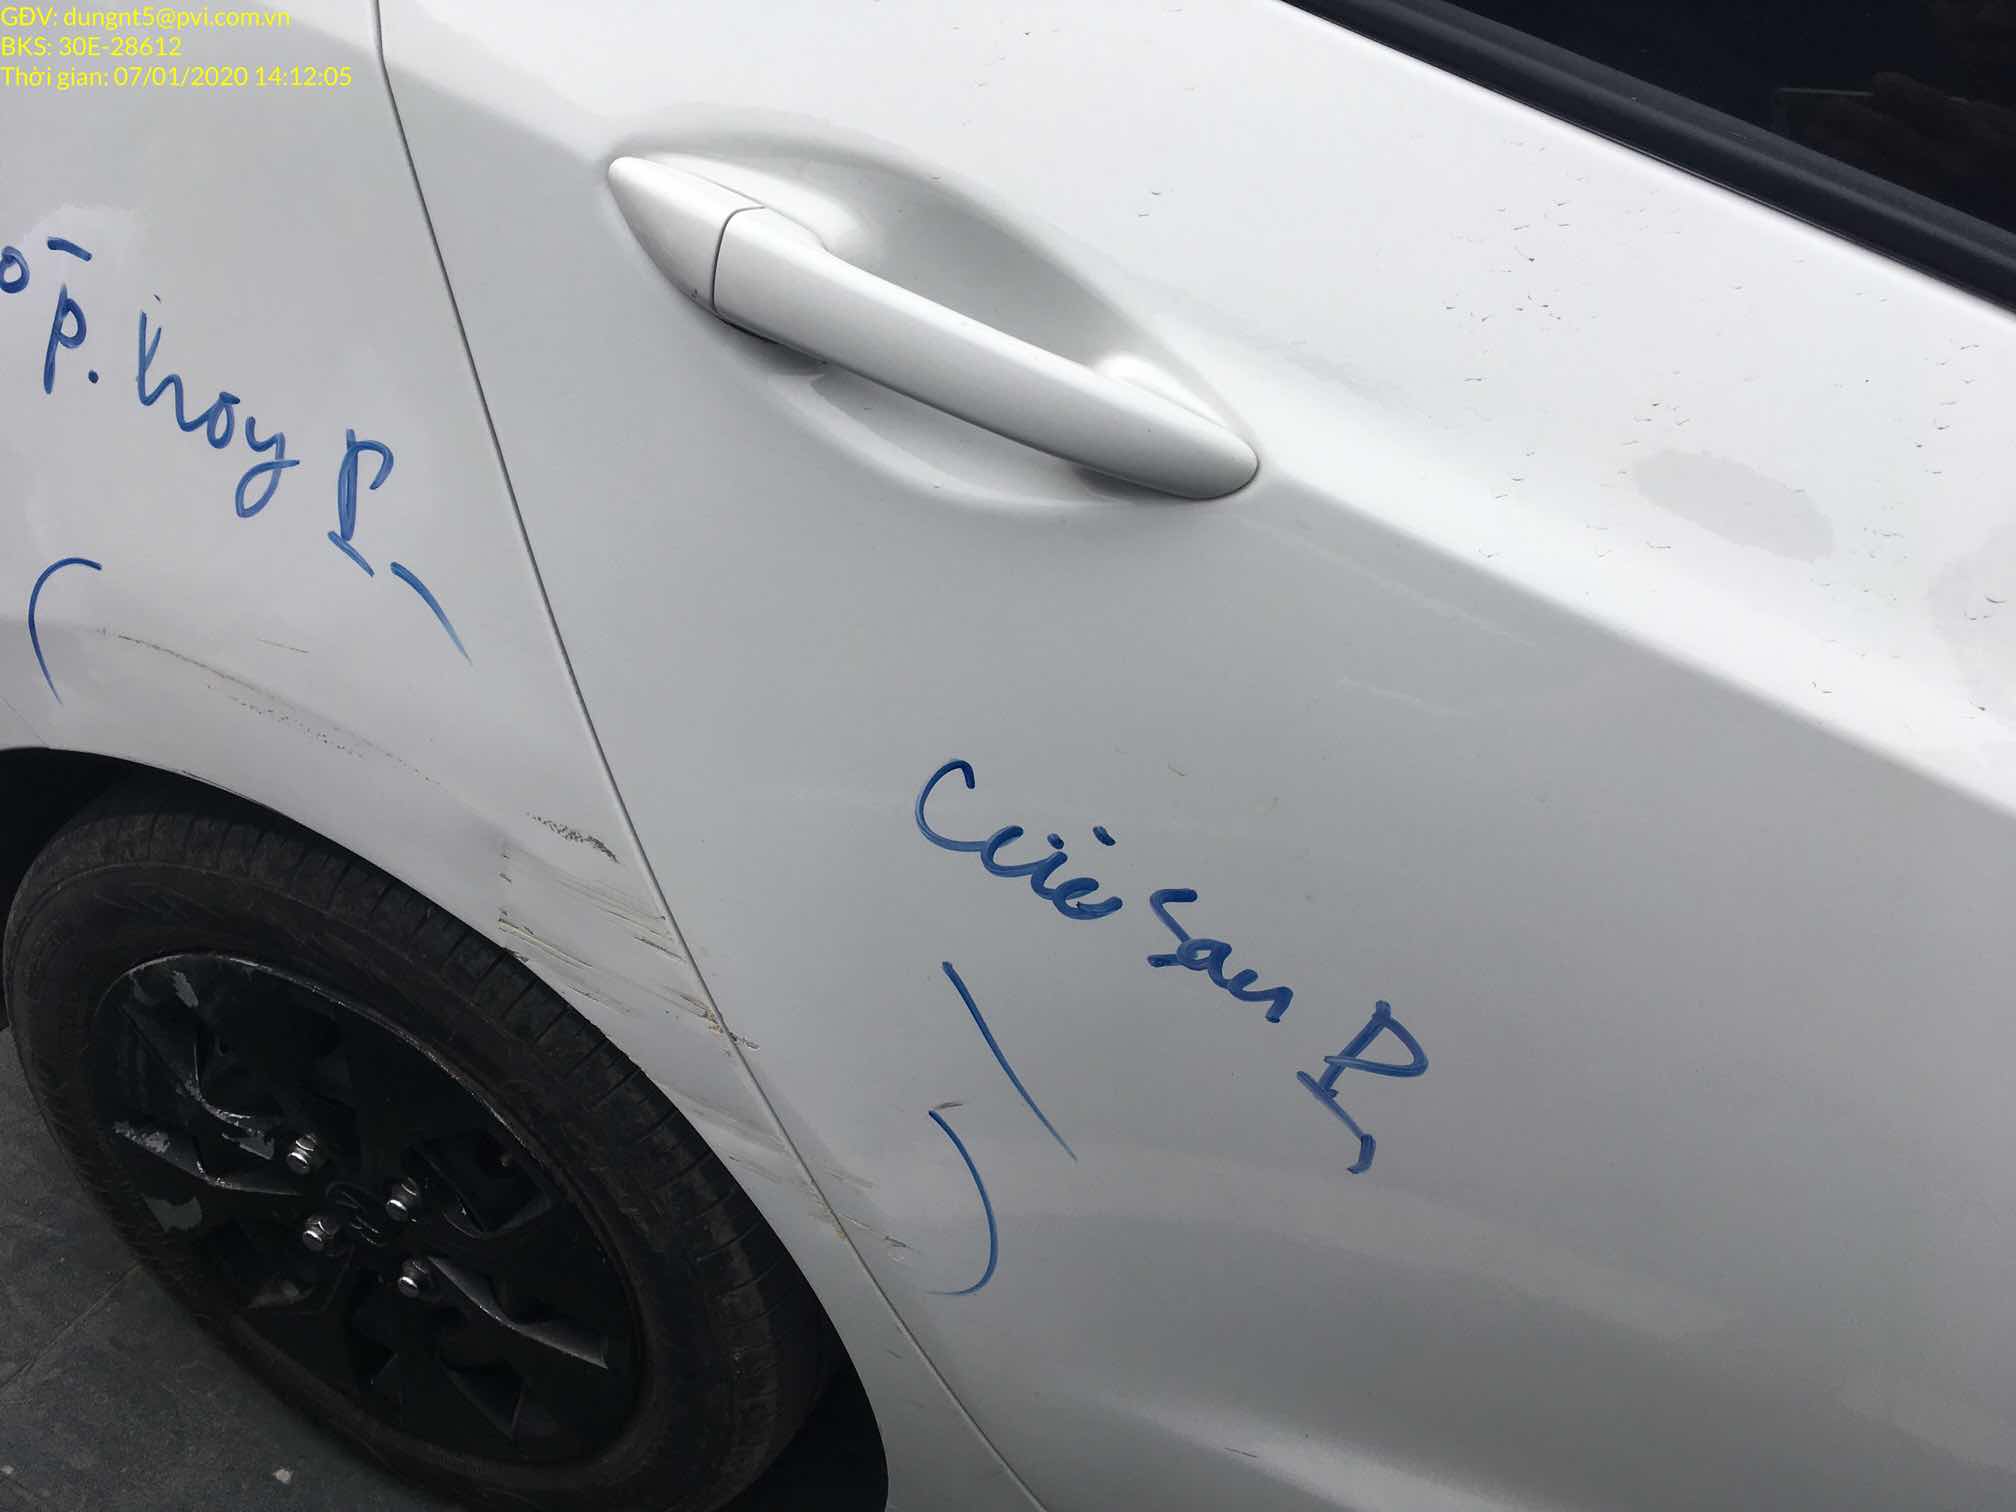 GĐV: dungnt5@pvi.com.vn
BKS: 30E-28612
Thời gian: 07/01/2020 14:12:05
P. hoy P
Cửa sau P